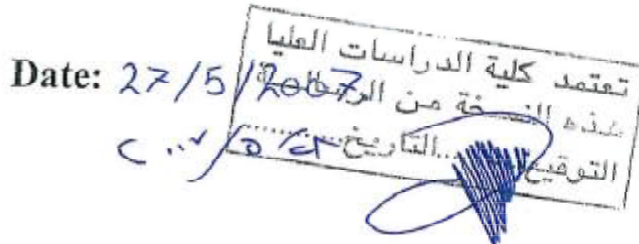 Date: 27/5/2007
تعتمد كلية الدراسات العليا
هذه النسخة من الرسالة
التوقيع.......التاريخ..........